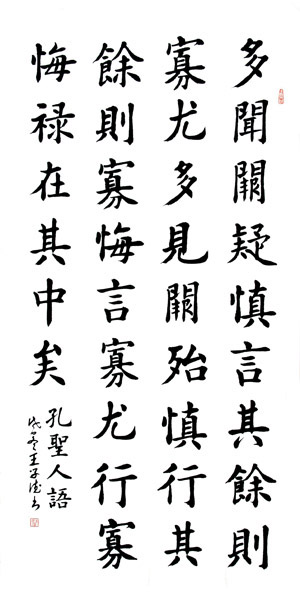 多聞闕疑慎言其餘則
寡尤多見闕殆慎行其
餘則寡悔言寡尤行寡
悔禄在其中矣
孔聖人語